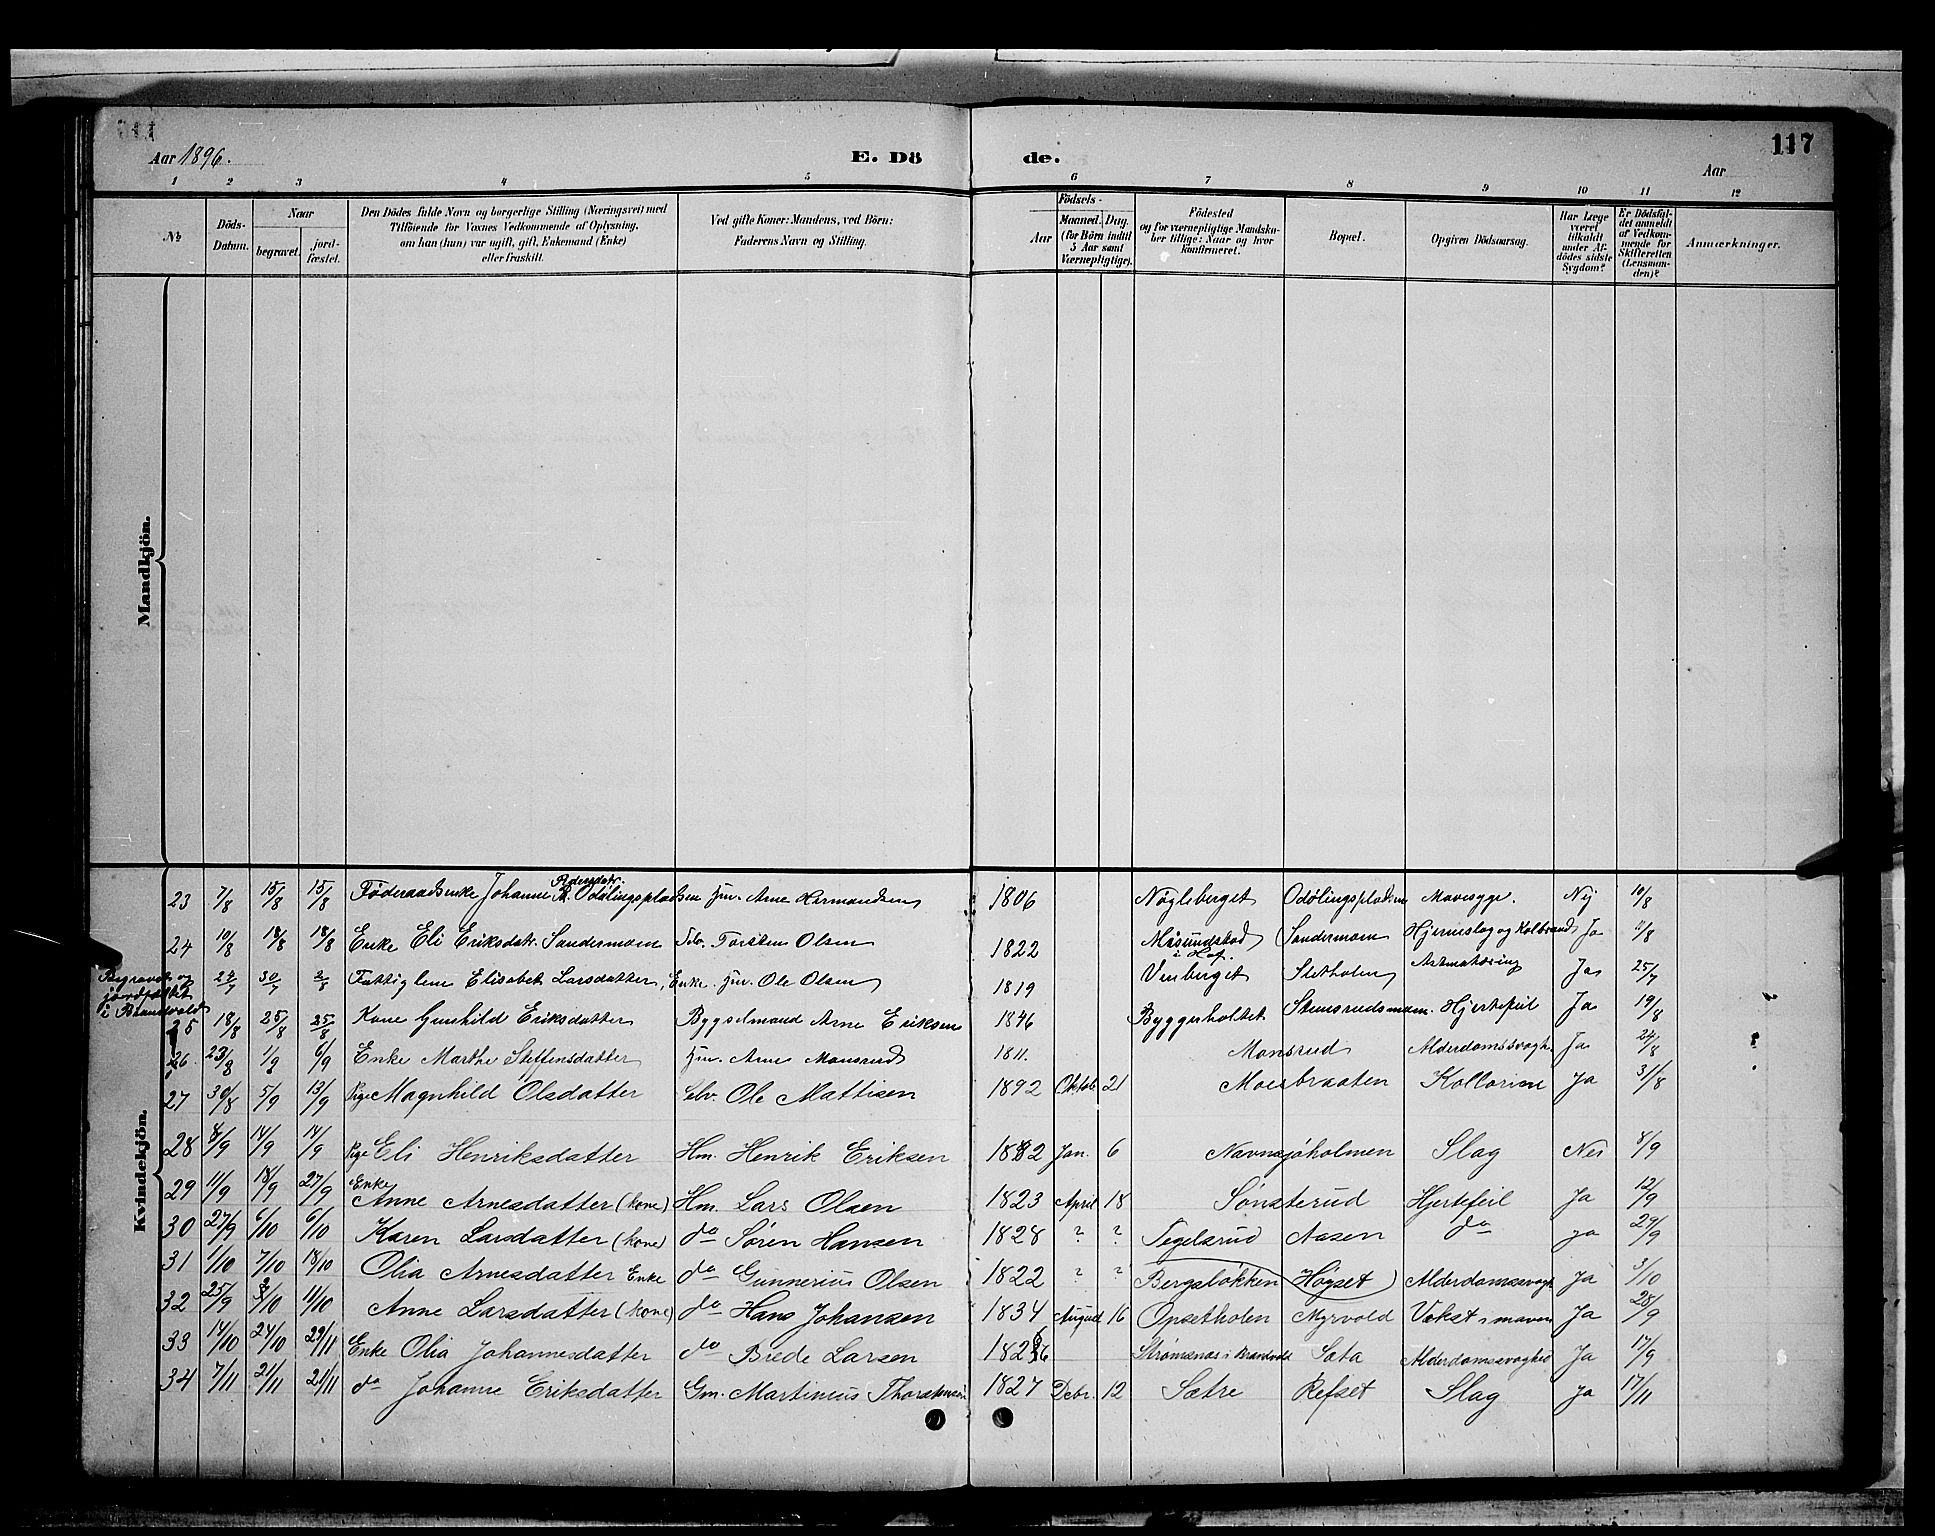 117
Aar 1896. E. Dö de. Aar
1 2 3 4 5 6 7 8 9 10 11 12
№ Döds-Datum. Naar begravet. jord-fæstet. Den Dödes fulde Navn og borgerlige Stilling (Næringsvei) med Tilföiende for Voxnes Vedkommende af Oplysning, om han (hun) var ugift, gift, Enkemand (Enke) eller fraskilt. Ved gifte Koner: Mandens, ved Börn: Faderens Navn og Stilling. Aar Födsels- Maaned. Dag. (for Börn indtil 5 Aar samt Værnepligtige). Födested og for værnepligtige Mandskaber tillige: Naar og hvor konfirmeret. Bopæl. Opgiven Dödsaarsag. Har Læge været tilkaldt under Afdödes sidste Sygdom? Er Dödsfaldet anmeldt af Vedkommende for Skifteretten (Lensmanden)? Anmærkninger.
Mandkjön.
Kvindekjön.
23 7/8 15/8 15/8 Føderaadsenke Johanne Pedersdatr. Odølingspladsen Hm. Arne Hermandsen 1806 Nøglsberget Odølingspladsen Mavesyge. Nei 10/8
24 10/8 18/8 18/8 Enke Eli Eriksdatr. Sandermoen Selv. Torsten Olsen 1822 i Hof. Sandermoen Hjerneslag og Kolbrand Ja 11/8
Begravet og jordfæstet i Brandvold 24/7 30/7 2/8 Fattiglem Elisabet Larsdatter, Enke Hm. Ole Olsen 1819 Vinberget Sletholen Astmatæring Ja 25/7
25 18/8 25/8 25/8 Kone Gunhild Eriksdatter Bygselmand Arne Eriksen 1846 Byggerholtet Stensrudsmoen. Hjertefeil Ja 19/8
26 23/8 1/9 6/9 Enke Marthe Steffensdatter Hm. Arne Monsrud 1811. Monsrud Alderdomssvagh. Ja 24/8
27 30/8 5/9 13/9 Pige Magnhild Olsdatter Selv. Ole Mattisen 1892 Oktob. 21 Moesbraaten Kollorine Ja 31/8
28 8/9 14/9 14/9 Pige Eli Henriksdatter Hm. Henrik Eriksen 1882 Jan. 6 Navnsjøholmen Slag Nei 8/9
29 11/9 18/9 27/9 Enke Anne Arnesdatter (kone) Hm. Lars Olsen 1823 April 18 Sønsterud Hjertefeil Ja 12/9
30 27/9 6/10 6/10 Karen Larsdatter (kone) do Søren Hansen 1828 ? ? Tegelsrud Aasen do Ja 29/9
31 1/10 7/10 18/10 Olia Arnesdatter Enke do Gunnerius Olsen 1822 ? ? Bergsløkken Høgset Alderdomssvagh Ja 3/10
32 25/9 /10 11/10 Anne Larsdatter (kone) do Hans Johansen 1834 August 16 Opsetholen Myrvold Vekst i maven Ja 28/9
33 14/10 24/10 29/11 Enke Olia Johannesdatter do Brede Larsen 1826 Strømsnes i Brandvold Sata Alderdomssvaghed Ja 17/9
34 7/11 21/11 21/11 do Johanne Eriksdatter Gm. Martinius Thorstensen 1827 Debr. 12 Sætre Refset Slag Ja 17/11